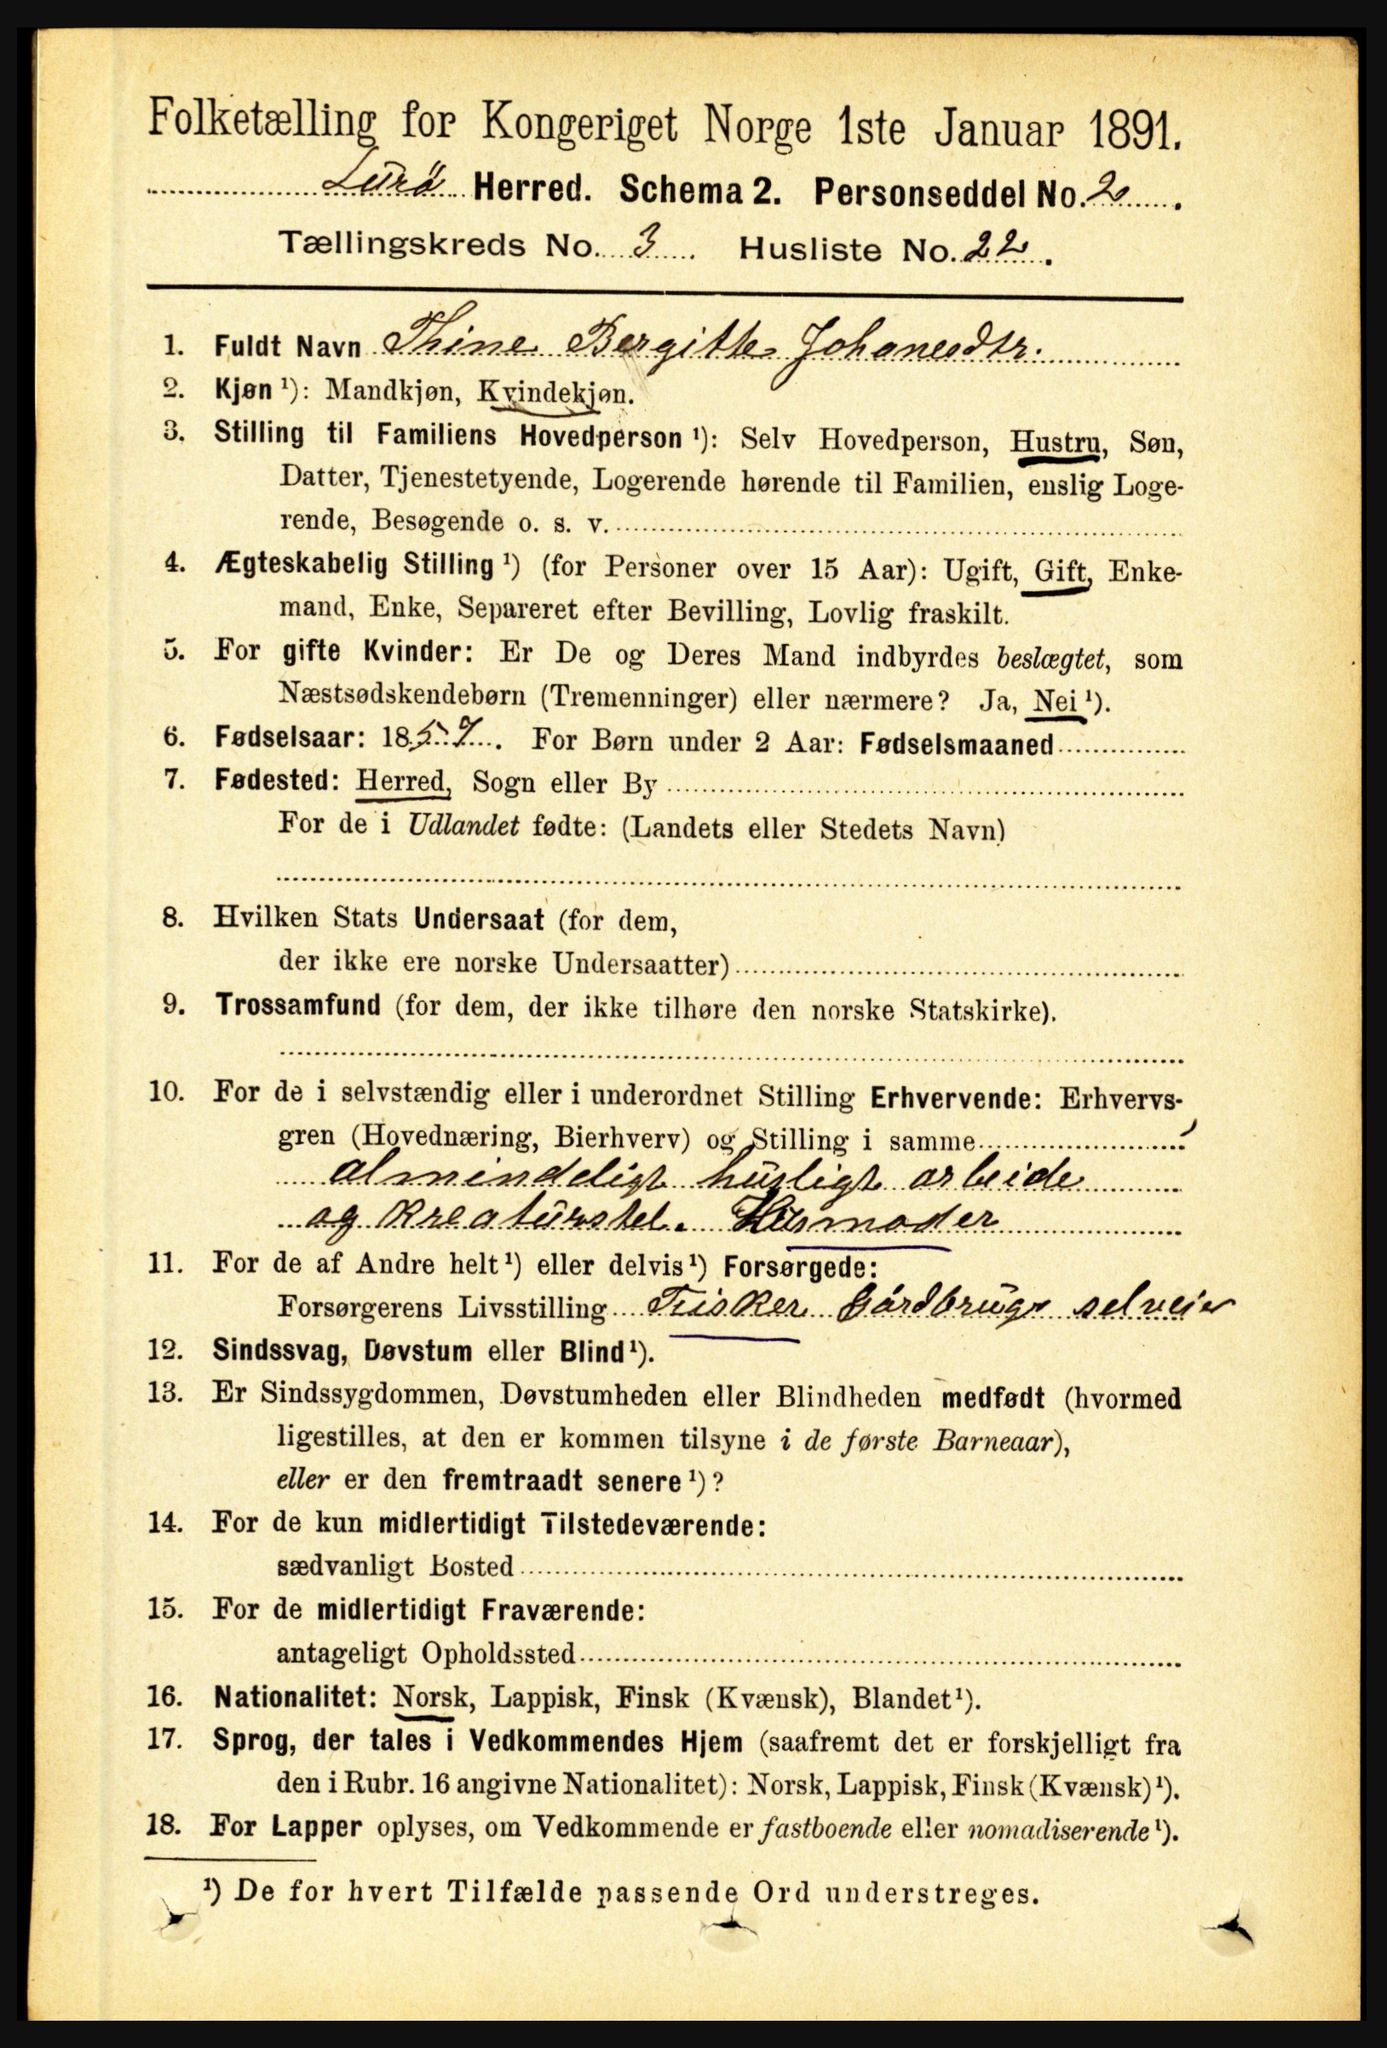 Folketælling for Kongeriget Norge 1ste Januar 1891.
Lurø Herred. Schema 2. Personseddel No. 2.
Tællingskreds No. 3. Husliste No. 22.
1. Fuldt Navn Thine Bergitte Johanesdtr.
2. Kjøn ¹): Mandkjøn, Kvindekjøn.
3. Stilling til Familiens Hovedperson ¹): Selv Hovedperson, Hustru, Søn,
Datter, Tjenestetyende, Logerende hørende til Familien, enslig Loge-
rende, Besøgende o. s. v.
4. Ægteskabelig Stilling ¹) (for Personer over 15 Aar): Ugift, Gift, Enke-
mand, Enke, Separeret efter Bevilling, Lovlig fraskilt.
5. For gifte Kvinder: Er De og Deres Mand indbyrdes beslægtet, som
Næstsødskendebørn (Tremenninger) eller nærmere? Ja, Nei ¹).
6. Fødselsaar: 1857. For Børn under 2 Aar: Fødselsmaaned
7. Fødested: Herred, Sogn eller By
For de i Udlandet fødte: (Landets eller Stedets Navn)
8. Hvilken Stats Undersaat (for dem,
der ikke ere norske Undersaatter)
9. Trossamfund (for dem, der ikke tilhøre den norske Statskirke).
10. For de i selvstændig eller i underordnet Stilling Erhvervende: Erhvervs-
gren (Hovednæring, Bierhverv) og Stilling i samme
almindeligt husligt arbeide
og kreaturstel. Husmoder
11. For de af Andre helt ¹) eller delvis ¹) Forsørgede:
Forsørgerens Livsstilling Fisker Gårdbruger selveier
12. Sindssvag, Døvstum eller Blind ¹).
13. Er Sindssygdommen, Døvstumheden eller Blindheden medfødt (hvormed
ligestilles, at den er kommen tilsyne i de første Barneaar),
eller er den fremtraadt senere ¹)?
14. For de kun midlertidigt Tilstedeværende:
sædvanligt Bosted
15. For de midlertidigt Fraværende:
antageligt Opholdssted
16. Nationalitet: Norsk, Lappisk, Finsk (Kvænsk), Blandet ¹).
17. Sprog, der tales i Vedkommendes Hjem (saafremt det er forskjelligt fra
den i Rubr. 16 angivne Nationalitet): Norsk, Lappisk, Finsk (Kvænsk) ¹).
18. For Lapper oplyses, om Vedkommende er fastboende eller nomadiserende ¹).
¹) De for hvert Tilfælde passende Ord understreges.